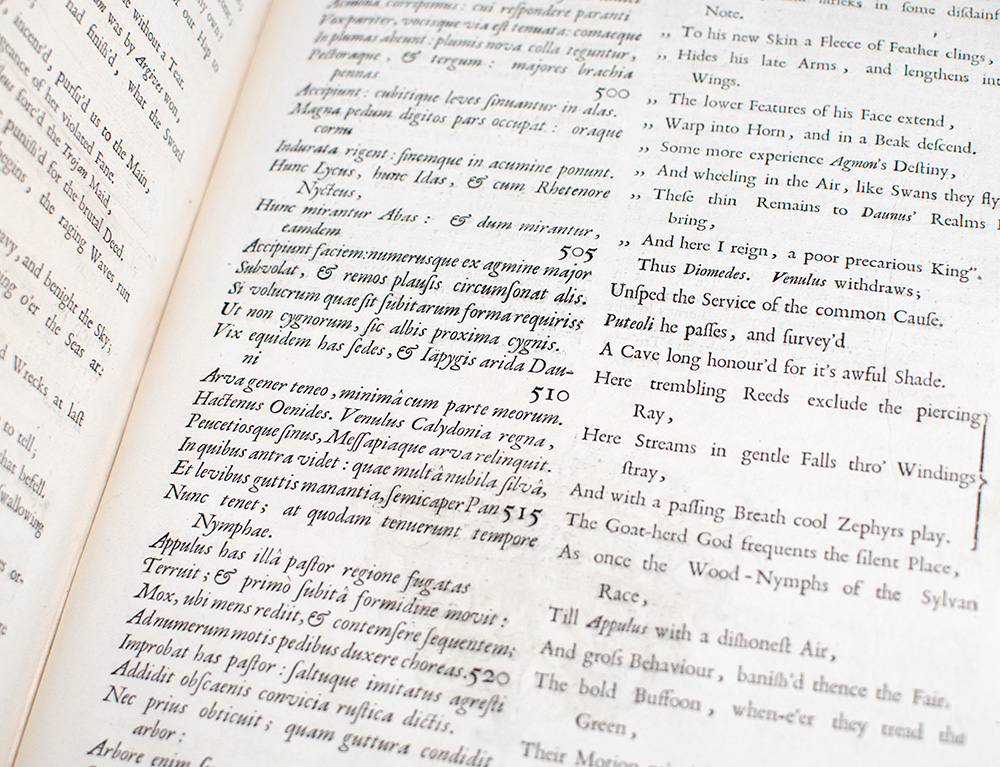 without a Tear.
of our Hap to
was by Argives won,
had finish'd, what the Sword
incens'd, pursu'd us to the Main,
of her violated Fane.
forc'd the Trojan Maid,
punish'd for the brutal Deed.
begins, the raging Waves run
and benight the Sky;
o'er the Seas are
Wrecks at last
to tell;
that befell.
swallowing
or-
Admona corripimus: cui respondere paranti
Vox pariter, vocisque via est tenuata: comaeque
In plumas abeunt: plumis nova colla teguntur,
Pectoraque, & tergum: majores brachia
pennas 500
Accipiunt: cubitique leves sinuantur in alas.
Magna pedum digitos pars occupat: oraque
cornu
Indurata rigent: finemque in acumine ponunt.
Hunc Lycus, hunc Idas, & cum Rhetenore
Nycteus,
Hunc mirantur Abas: & dum mirantur,
eamdem 505
Accipiunt faciem: numerusque ex agmine major
Subvolat, & remos plausis circumsonat alis.
Si volucrum quae sit subitarum forma requiris;
Ut non cygnorum, sic albis proxima cygnis.
Vix equidem has sedes, & Iapygis arida Dau-
ni 510
Arva gener teneo, minimâ cum parte meorum.
Hactenus Oenides. Venulus Calydonia regna,
Peucetiosque sinus, Messapiaque arva relinquit.
In quibus antra videt: quae multâ nubila silvâ,
Et levibus guttis manantia, semicaper Pan 515
Nunc tenet; at quodam tenuerunt tempore
Nymphae.
Appulus has illâ pastor regione fugatas
Terruit; & primò subitâ formidine movit:
Mox, ubi mens rediit, & contemsere sequentem;
Ad numerum motis pedibus duxere choreas. 520
Improbat has pastor: saltuque imitatus agresti
Addidit obscaenis convicia rustica dictis.
Nec prius obticuit; quam guttura condidit
arbor:
Arbore enim
in some disdainf
Note.
„ To his new Skin a Fleece of Feather clings,
„ Hides his late Arms, and lengthens int
Wings.
„ The lower Features of his Face extend,
„ Warp into Horn, and in a Beak descend.
„ Some more experience Agmon's Destiny,
„ And wheeling in the Air, like Swans they fly
„ These thin Remains to Daunus' Realms I
bring,
„ And here I reign, a poor precarious King“.
Thus Diomedes. Venulus withdraws;
Unsped the Service of the common Cause.
Puteoli he passes, and survey'd
A Cave long honour'd for it's awful Shade.
Here trembling Reeds exclude the piercing
Ray,
Here Streams in gentle Falls thro' Windings
stray,
And with a passing Breath cool Zephyrs play.
The Goat-herd God frequents the silent Place,
As once the Wood-Nymphs of the Sylvan
Race,
Till Appulus with a dishonest Air,
And gross Behaviour, banish'd thence the Fair.
The bold Buffoon, when-e'er they tread the
Green,
Their Motion